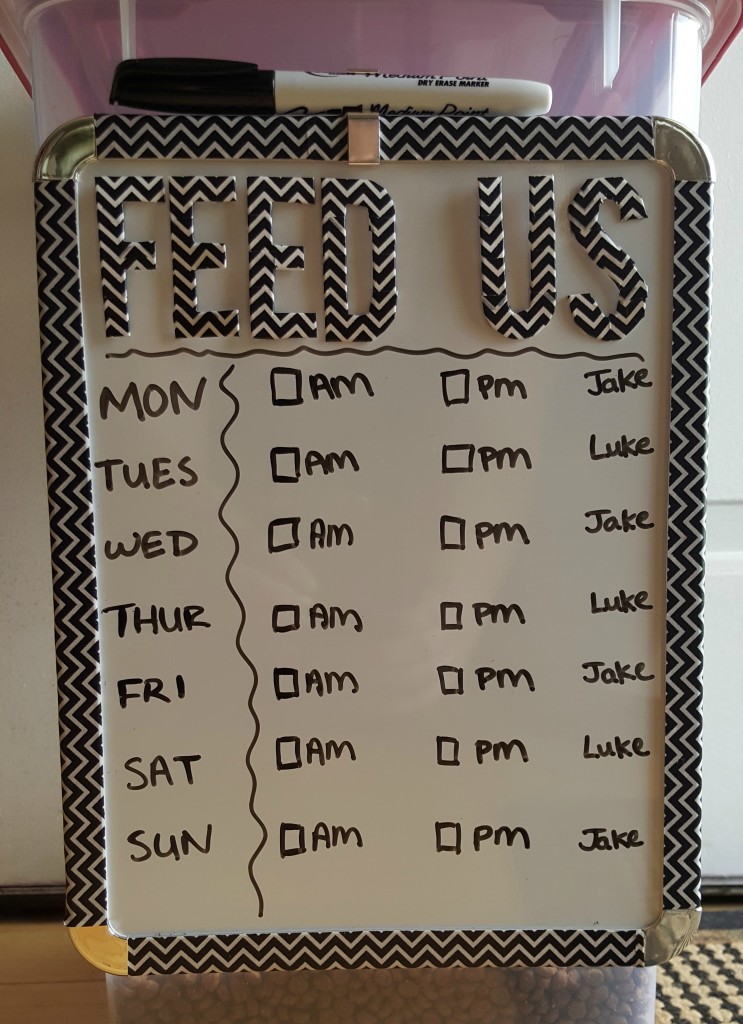 Medium Point
DRY ERASE MARKER
Medium Point
FEED US
MON AM PM Jake
TUES AM PM Luke
WED AM PM Jake
THUR AM PM Luke
FRI AM PM Jake
SAT AM PM Luke
SUN AM PM Jake